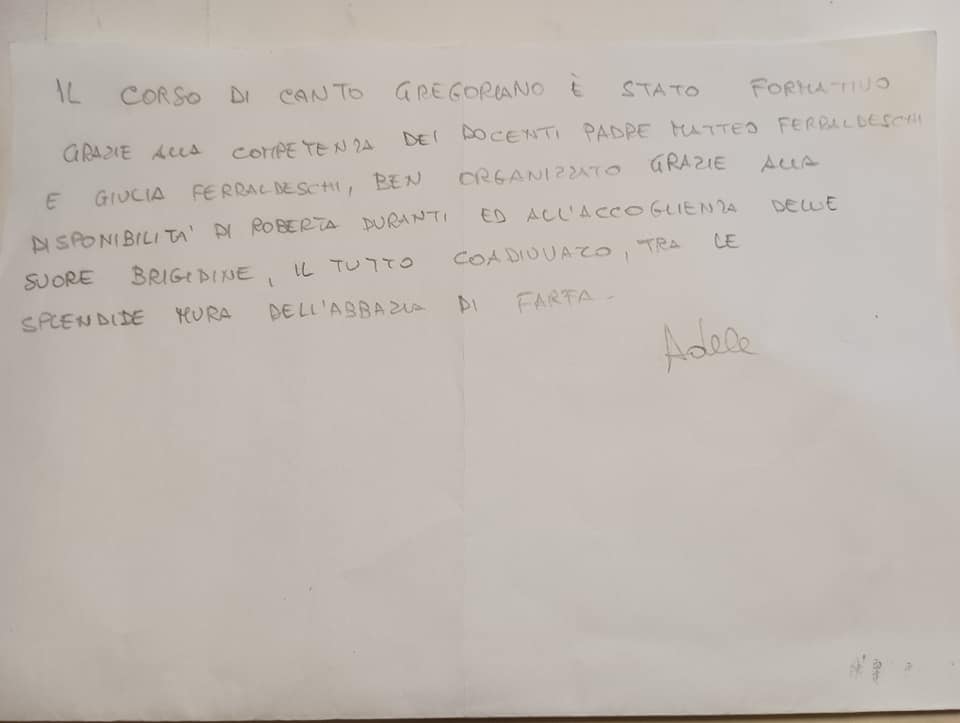 IL CORSO DI CANTO GREGORIANO È STATO FORMATIVO
GRAZIE ALLA COMPETENZA DEI DOCENTI PADRE MATTEO FERRALDESCHI
E GIULIA FERRALDESCHI, BEN ORGANIZZATO GRAZIE ALLA
DISPONIBILITA' DI ROBERTA DURANTI ED ALL'ACCOGLIENZA DELLE
SUORE BRIGIDINE, IL TUTTO COADIUVATO, TRA LE
SPLENDIDE MURA DELL'ABBAZIA DI FARFA.
Adele